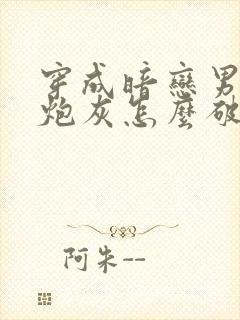 穿成暗戀男
炮灰怎麼破
阿朱--